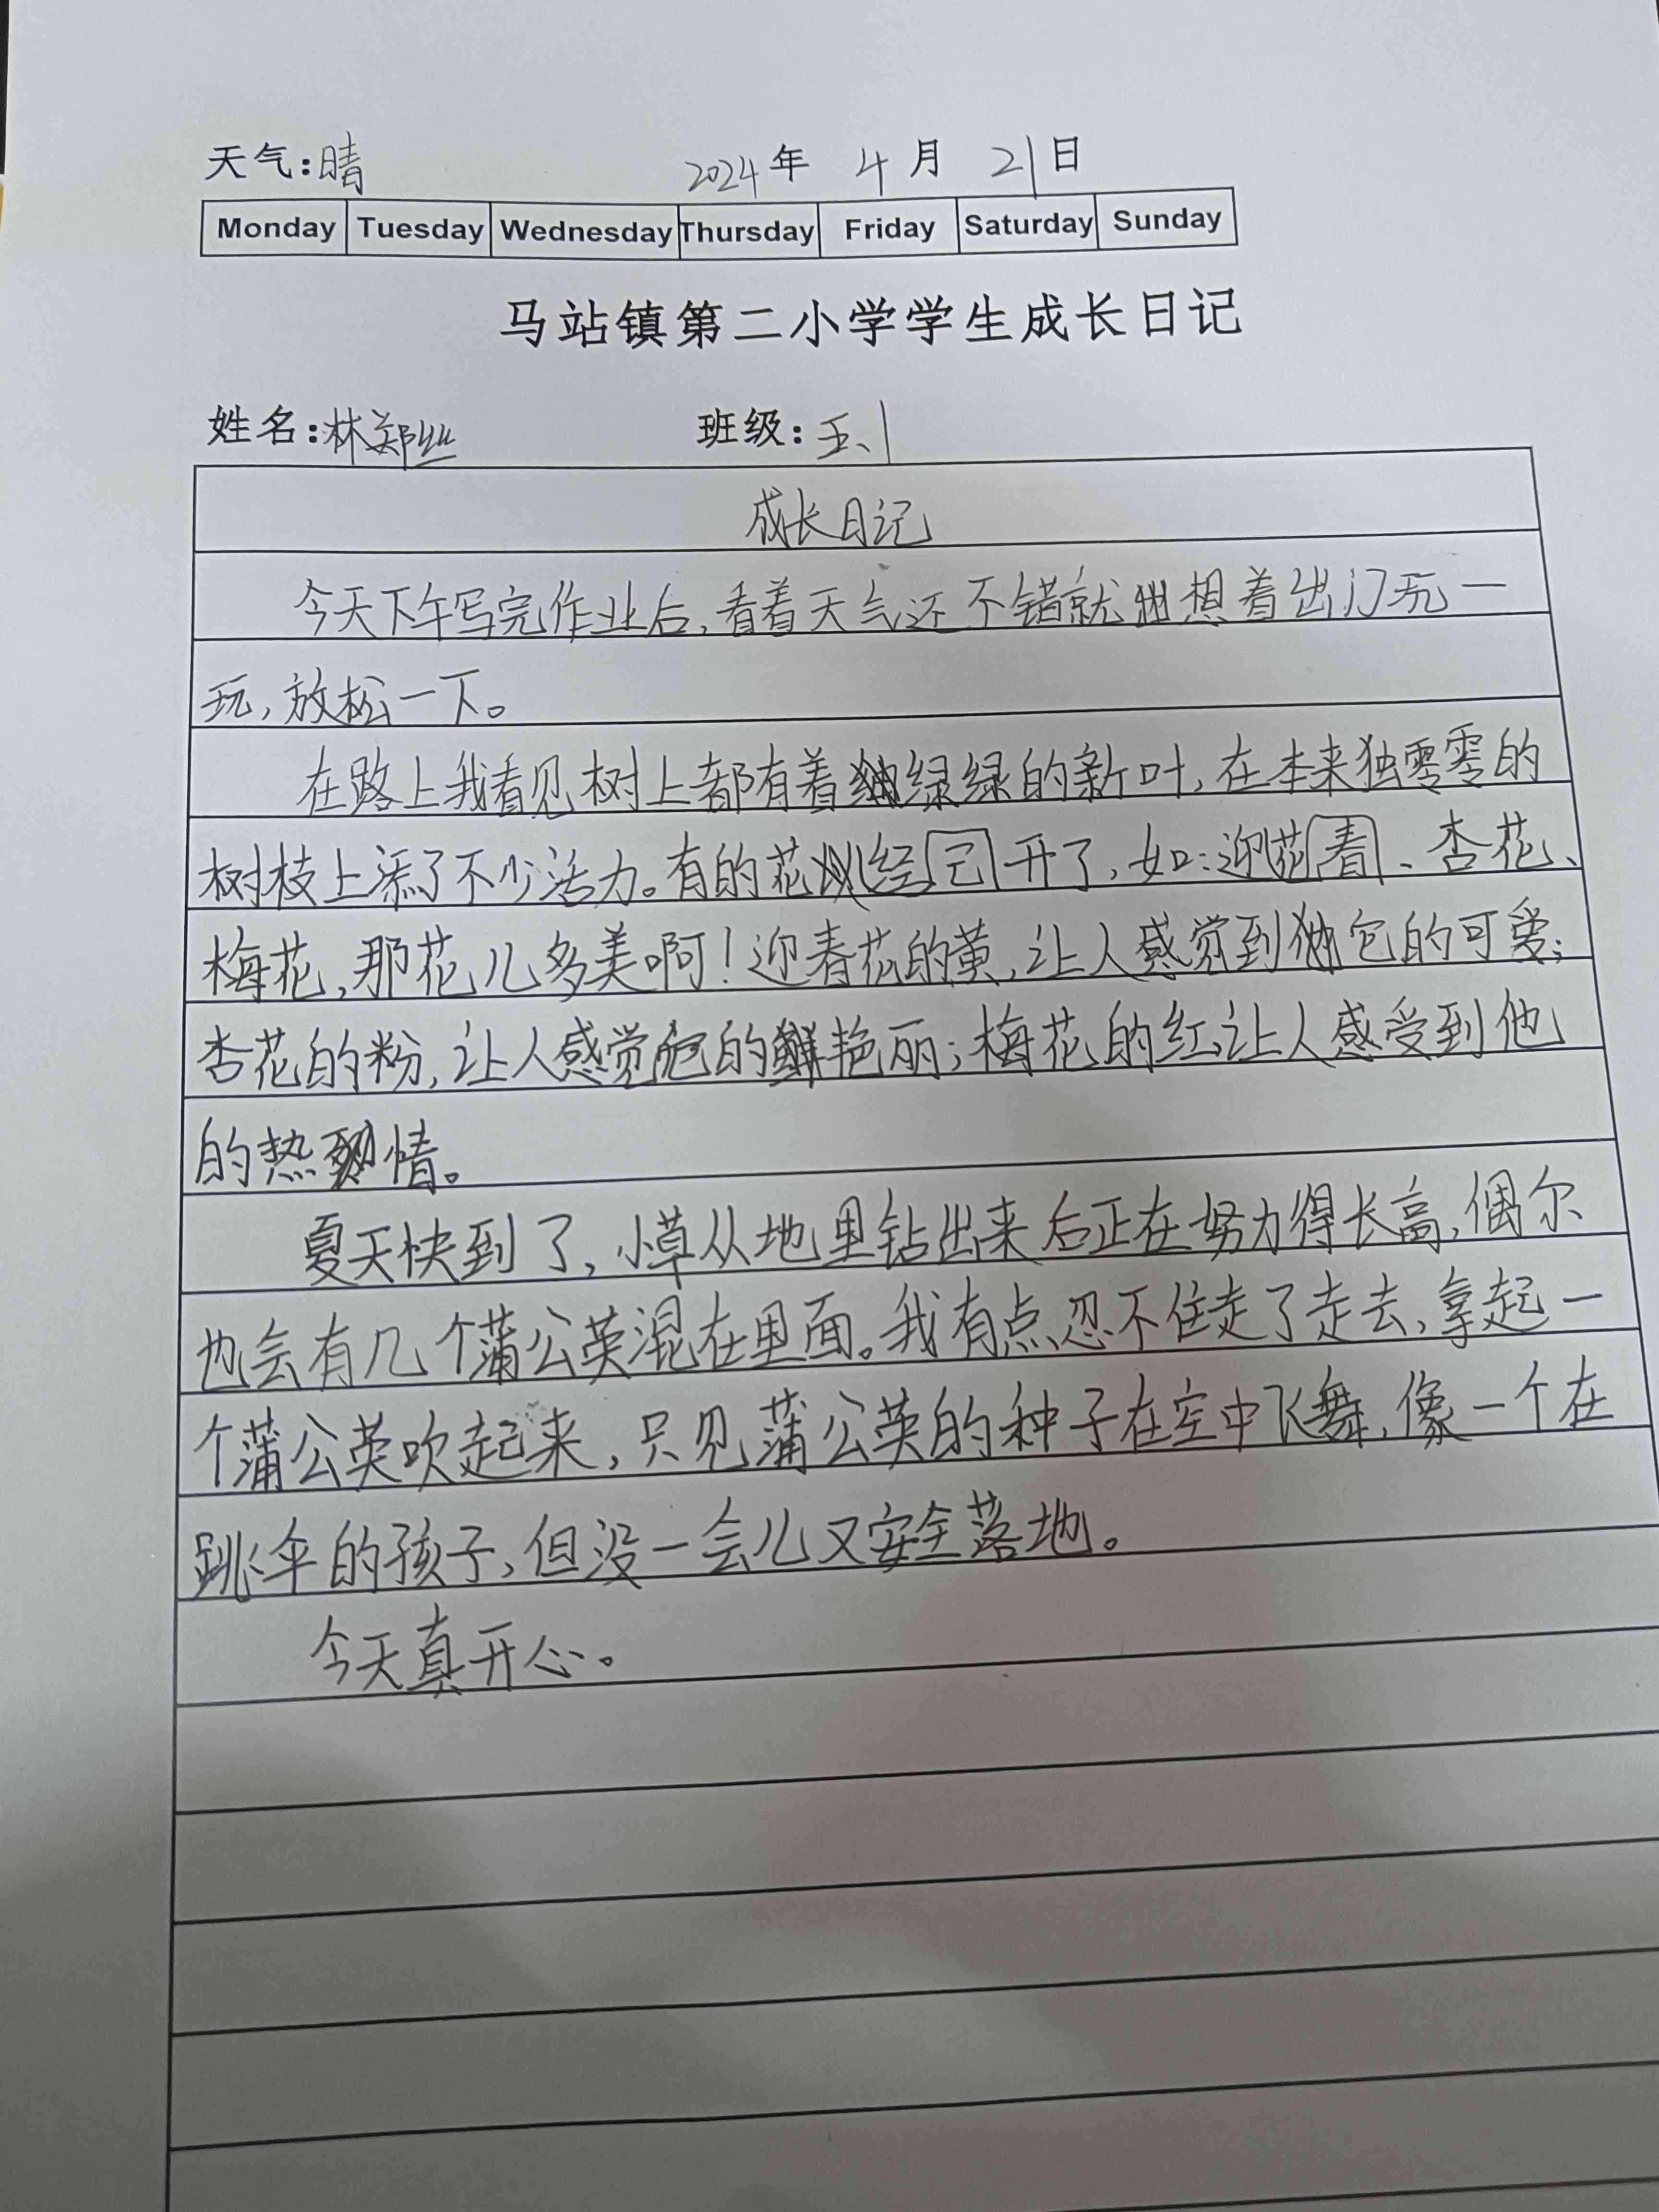 天气:晴 2024年 4月 21日
Monday Tuesday Wednesday Thursday Friday Saturday Sunday
马站镇第二小学学生成长日记
姓名:林郑丝 班级:五、1
成长日记
今天下午写完作业后,看着天气还不错就想着出门玩一
玩,放松一下。
在路上我看见树上都有着绿绿的新叶,在本来独零零的
树枝上添了不少活力。有的花经已开了,如:迎花春、杏花、
梅花,那花儿多美啊!迎春花的黄,让人感觉到它的可爱;
杏花的粉,让人感觉它的鲜艳丽;梅花的红让人感受到他
的热情。
夏天快到了,小草从地里钻出来后正在努力得长高,偶尔
也会有几个蒲公英混在里面。我有点忍不住走了走去,拿起一
个蒲公英吹起来,只见蒲公英的种子在空中飞舞,像一个在
跳伞的孩子,但没一会儿又安全落地。
今天真开心。